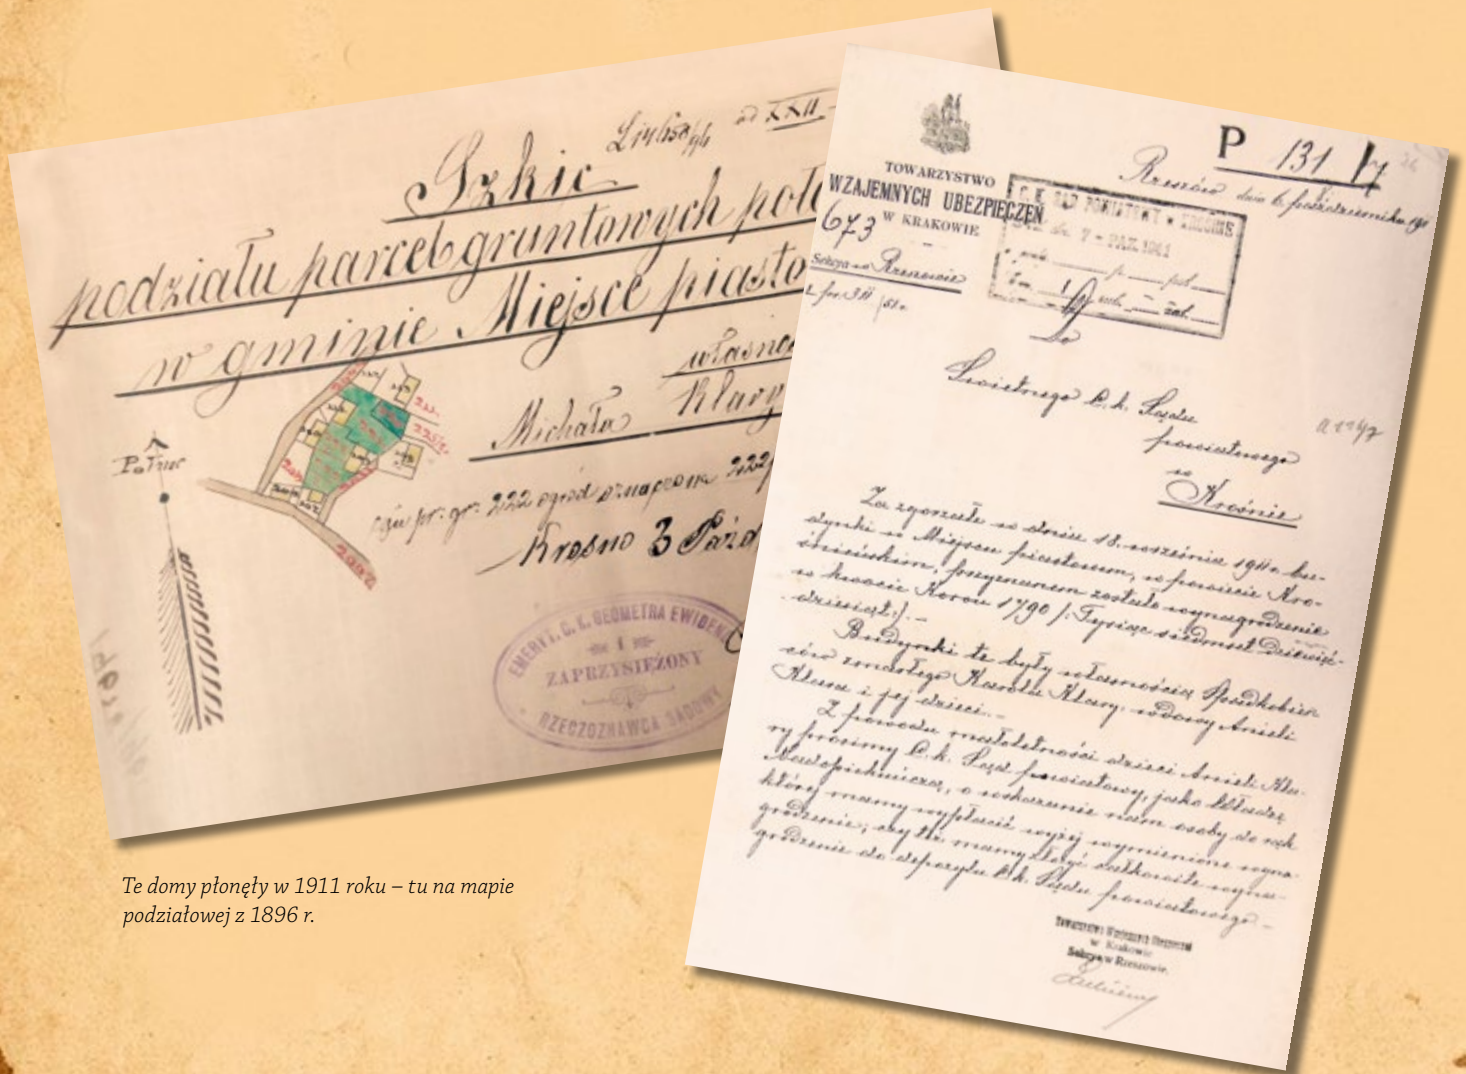 Szkic
podziału parcel gruntowych poło
w gminie Miejsce piasto
własno
Michała Klary
Północ
pr. gr. 222 ogród oznaczone 222/
Krosno 3 Paźd
EMERYT. C. K. GEOMETRA EWIDEN
I
ZAPRZYSIĘŻONY
RZECZOZNAWCA SĄDOWY
Te domy płonęły w 1911 roku – tu na mapie
podziałowej z 1896 r.
P 131
Rzeszów dnia 6 października 191
TOWARZYSTWO
WZAJEMNYCH UBEZPIECZEŃ
W KRAKOWIE
673
Sekcya w Rzeszowie
C. K. SĄD POWIATOWY w KROŚNIE
7 - PAZ. 1911
Do
Świetnego C. k. Sądu
powiatowego
w
Krośnie
Za zgorzałe w dniu 18. września 1911 bu-
dynki w Miejscu piastowem, w powiecie Kro-
śnieńskim, przyznanem zostało wynagrodzenie
w kwocie Koron 1790 /: Tysiąc siedmset dziewięć-
dziesiąt :/. -
Budynki te były własnością Spadkobier-
ców zmarłego Karola Klary, wdowy Anieli
Klara i jej dzieci. -
Z powodu małoletności dzieci Anieli Kla-
ry prosimy C. k. Sąd powiatowy, jako Władzę
Nadopiekuńczą, o wskazanie nam osoby do rąk
której mamy wypłacić wyżej wymienione wyna-
grodzenie; czy też mamy złożyć całkowite wyna-
grodzenie do depozytu C. k. Sądu powiatowego. -
Towarzystwo Wzajemnych Ubezpieczeń
w Krakowie
Sekcya w Rzeszowie.